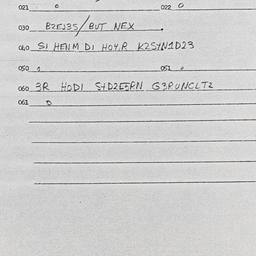 021 0 022 0
030 BZEJ35/BUT NEX .
040 SI HENM DI HOY.R KZSYN1D23
050 1 051
060 3R HODI SYDZEERN G3PUNCLTZ
061 0